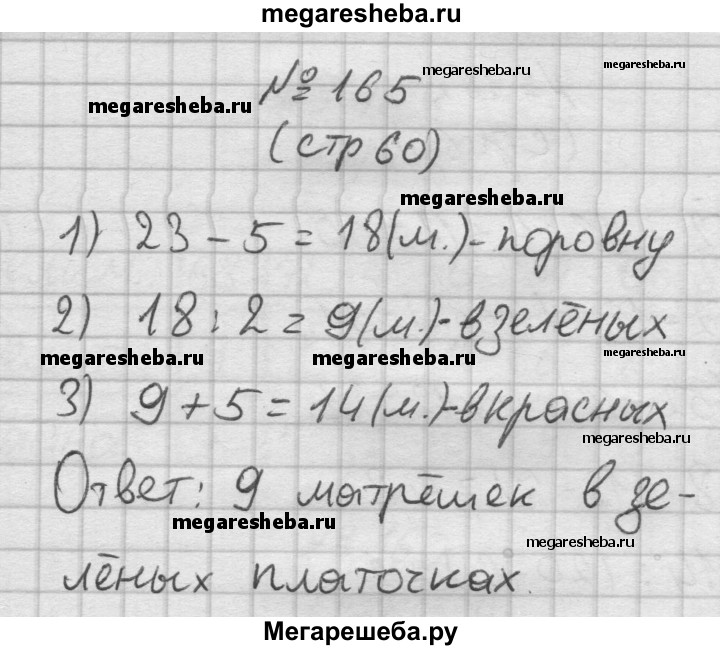 megaresheba.ru
№ 165
megaresheba.ru
megaresheba.ru
megaresheba.ru
(стр 60)
megaresheba.ru
1) 23 - 5 = 18(м.)-поровну
2) 18 : 2 = 9(м.)-в зелёных
megaresheba.ru
megaresheba.ru
megaresheba.ru
3) 9 + 5 = 14(м.)-в красных
megaresheba.ru
Ответ: 9 матрёшек в зе-
megaresheba.ru
megaresheba.ru
лёных платочках.
Мегарешеба.ру